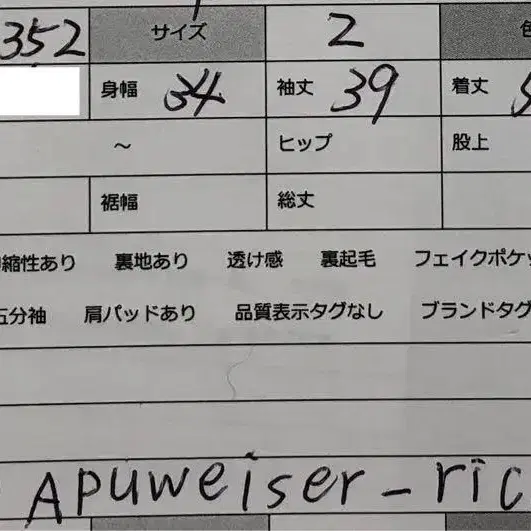 352 サイズ 2
身幅 34 袖丈 39 着丈
～ ヒップ 股上
裾幅 総丈
縮性あり 裏地あり 透け感 裏起毛 フェイクポケッ
五分袖 肩パッドあり 品質表示タグなし ブランドタグ
Apuweiser-ric